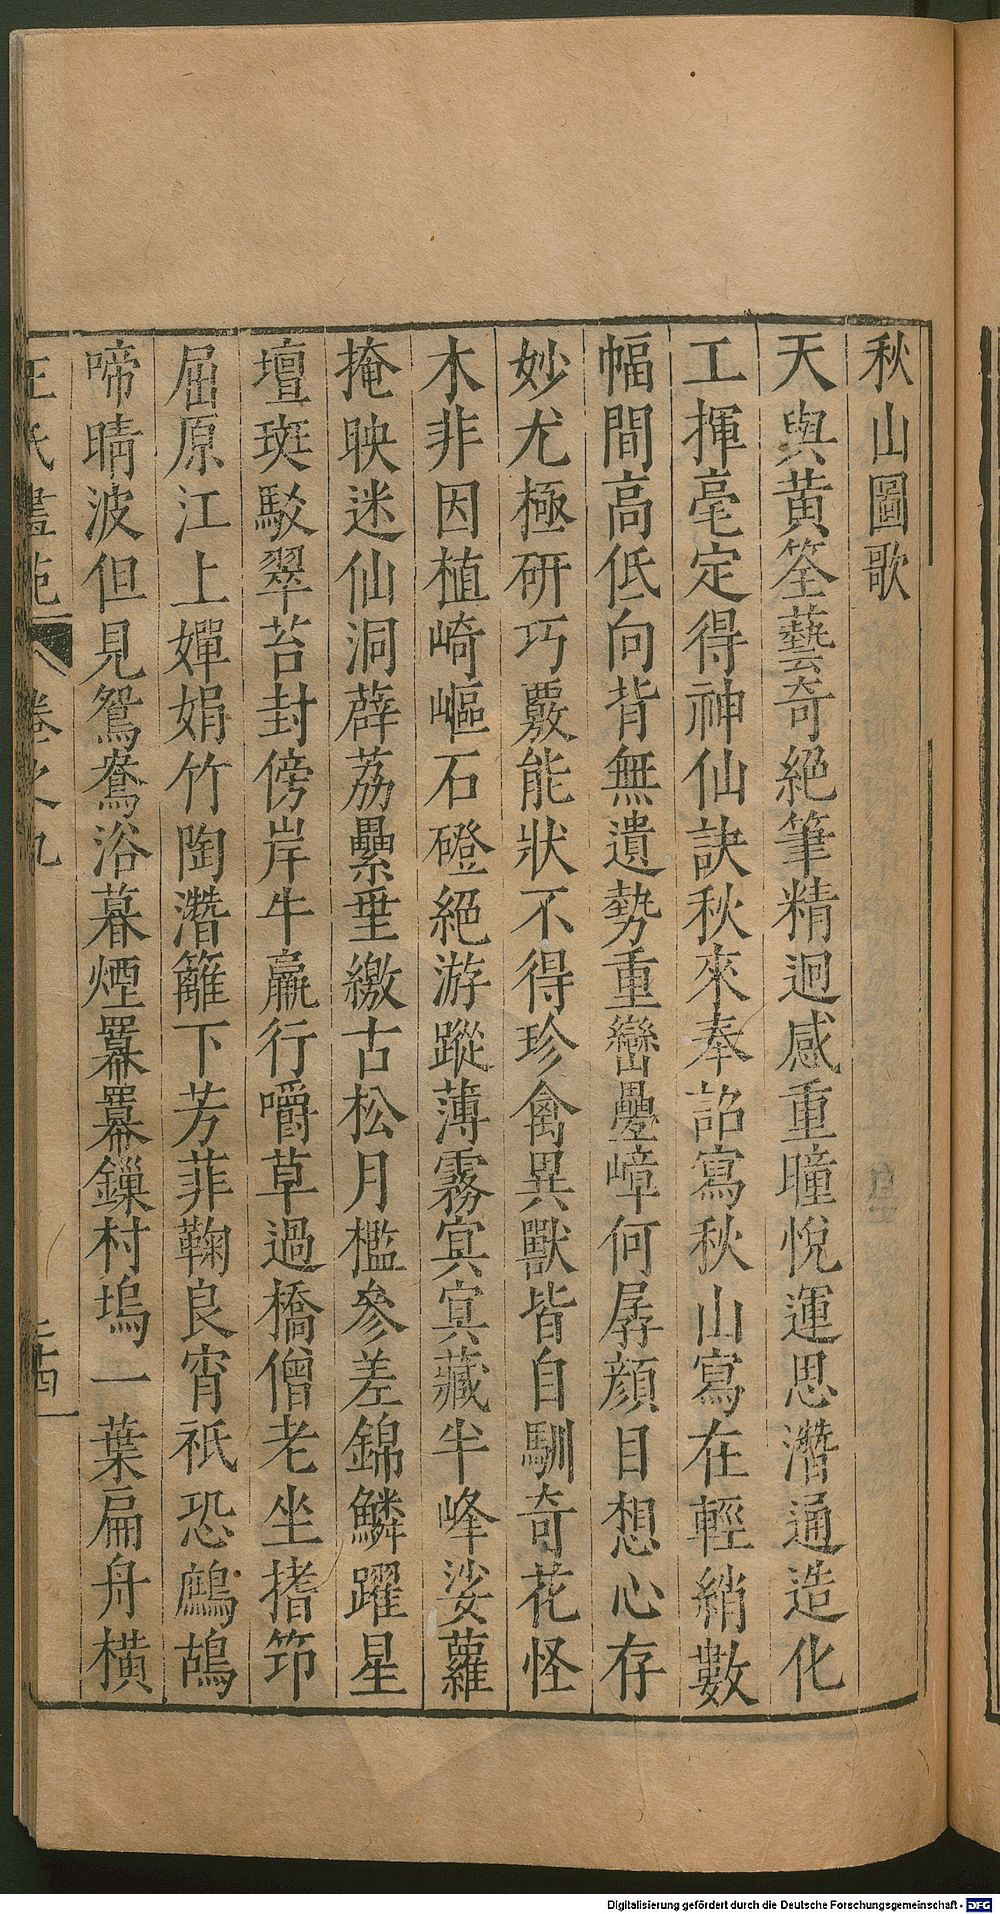 秋山圖歌
天與黃筌藝奇絕筆精迥感重瞳悅運思潛通造化
工揮毫定得神仙訣秋來奉詔寫秋山寫在輕綃數
幅間高低向背無遺勢重巒疊嶂何孱顏目想心存
妙尤極研巧覈能狀不得珍禽異獸皆自馴奇花怪
木非因植崎嶇石磴絕游蹤薄霧㝠㝠藏半峰娑蘿
掩映迷仙洞薜荔纍垂繳古松月檻參差錦鱗躍星
壇斑駁翠苔封傍岸牛羸行嚼草過橋僧老坐搘筇
屈原江上嬋娟竹陶潛籬下芳菲鞠良宵祇恐鷓鴣
啼晴波但見鴛鴦浴暮煙羃羃鏁村塢一葉扁舟橫
王氏畫苑 卷之九 五十四
Digitalisierung gefördert durch die Deutsche Forschungsgemeinschaft - DFG